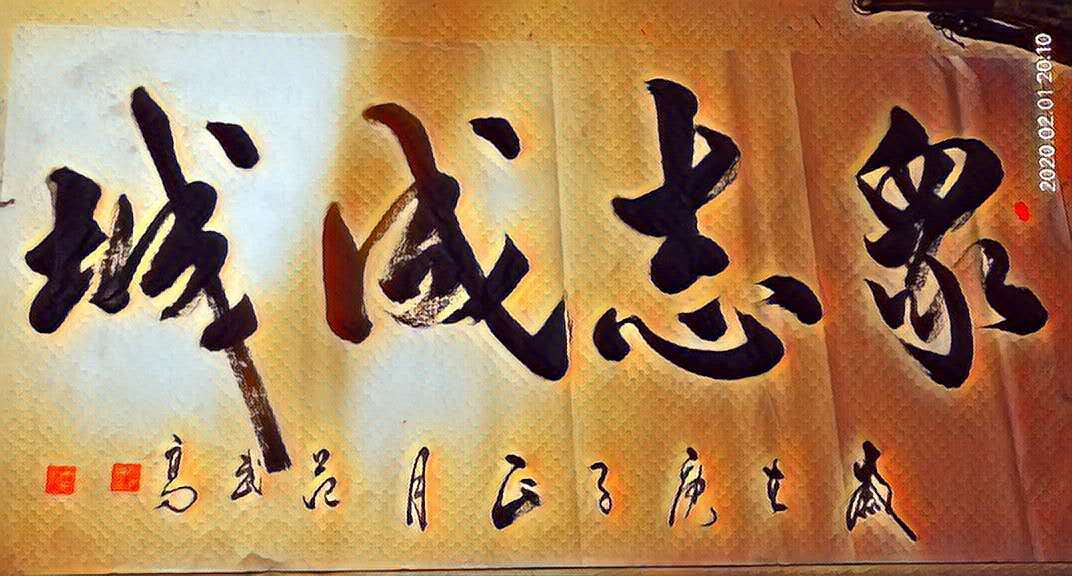 眾志成城
歲在庚子正月范武高
2020.02.01 20:10